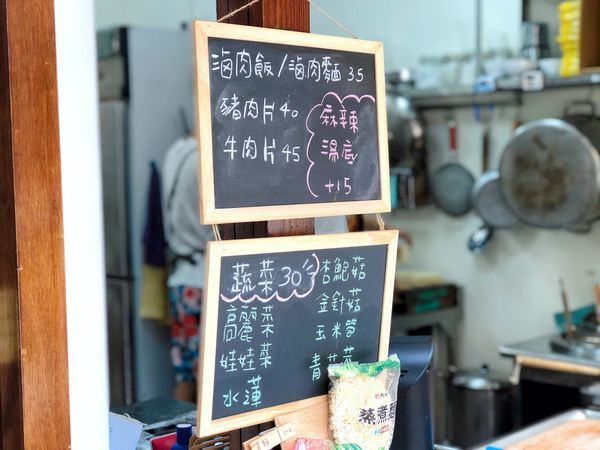 滷肉飯/滷肉麵 35
豬肉片40
牛肉片45
麻辣
湯底
+15
蔬菜30
高麗菜
娃娃菜
水蓮
杏鮑菇
金針菇
玉米筍
青花菜
蒸煮麵